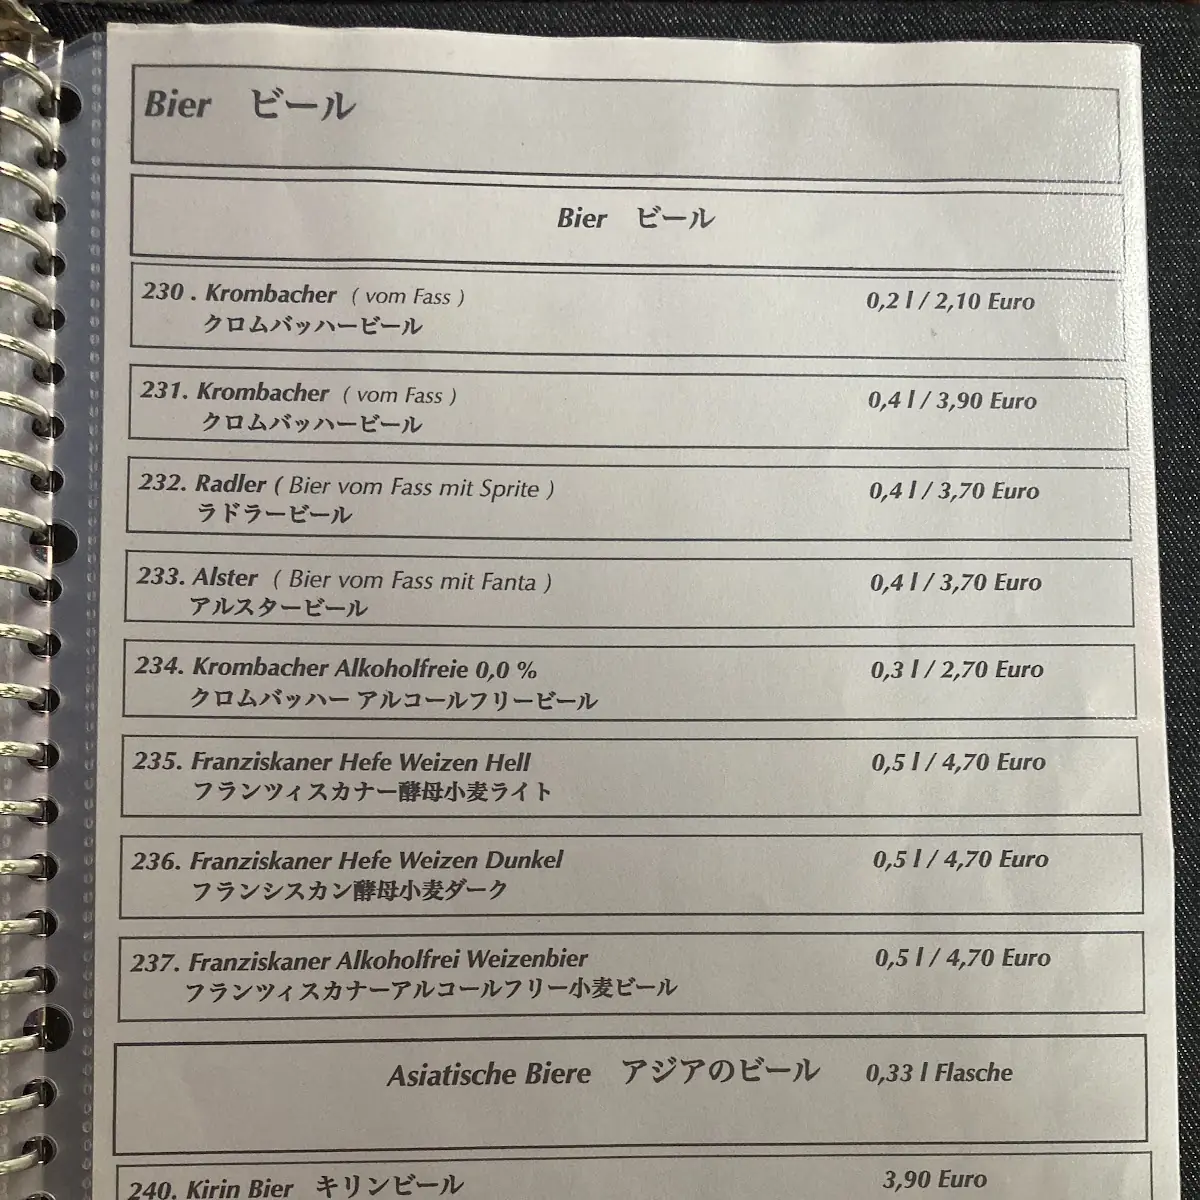 Bier ビール
Bier ビール
230 . Krombacher ( vom Fass ) 0,2 l / 2,10 Euro
クロムバッハービール
231. Krombacher ( vom Fass ) 0,4 l / 3,90 Euro
クロムバッハービール
232. Radler ( Bier vom Fass mit Sprite ) 0,4 l / 3,70 Euro
ラドラービール
233. Alster ( Bier vom Fass mit Fanta ) 0,4 l / 3,70 Euro
アルスタービール
234. Krombacher Alkoholfreie 0,0 % 0,3 l / 2,70 Euro
クロムバッハー アルコールフリービール
235. Franziskaner Hefe Weizen Hell 0,5 l / 4,70 Euro
フランツィスカナー酵母小麦ライト
236. Franziskaner Hefe Weizen Dunkel 0,5 l / 4,70 Euro
フランシスカン酵母小麦ダーク
237. Franziskaner Alkoholfrei Weizenbier 0,5 l / 4,70 Euro
フランツィスカナーアルコールフリー小麦ビール
Asiatische Biere アジアのビール 0,33 l Flasche
240. Kirin Bier キリンビール 3,90 Euro